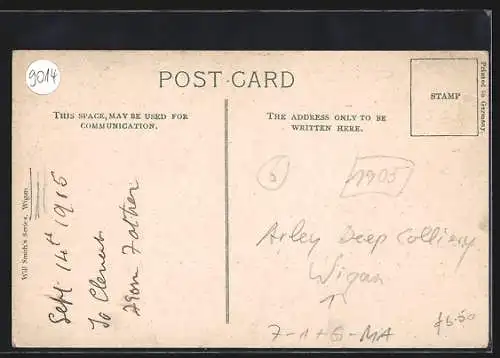 9014
POST-CARD
THIS SPACE, MAY BE USED FOR
COMMUNICATION.
THE ADDRESS ONLY TO BE
WRITTEN HERE.
STAMP
Printed in Germany.
Will Smith's Series, Wigan.
Sept 14th 1915
To Clement
From Father
6
1905
Arley Deep Colliery
Wigan
7-1+G-MA
£6.50